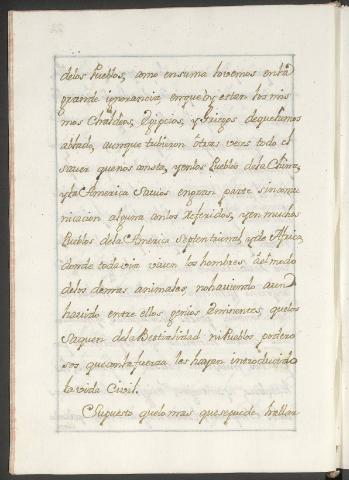 delos Pueblos, como ensuma lovemos enla
grande ignorancia enque oy estan los mis
mos Chaldeos, Egipcios, y Griegos dequehemos
ablado, aunque tubieron otras veces todo el
saver quenos consta, yenlos Pueblos dela China,
yla America Sauios engran parte sin comu
nicacion alguna conlos Referidos, yen muchos
Pueblos dela America Septentrional, y de Africa
donde todavia viven los hombres al modo
delos demas animales, nohaviendo aun
havido entre ellos genios eminentes, quelos
saquen dela Bestialidad ni Pueblos podero
sos que conla fuerza les hayan introducido
la vida Civil.
Supuesto quelo mas quesepuede hallar